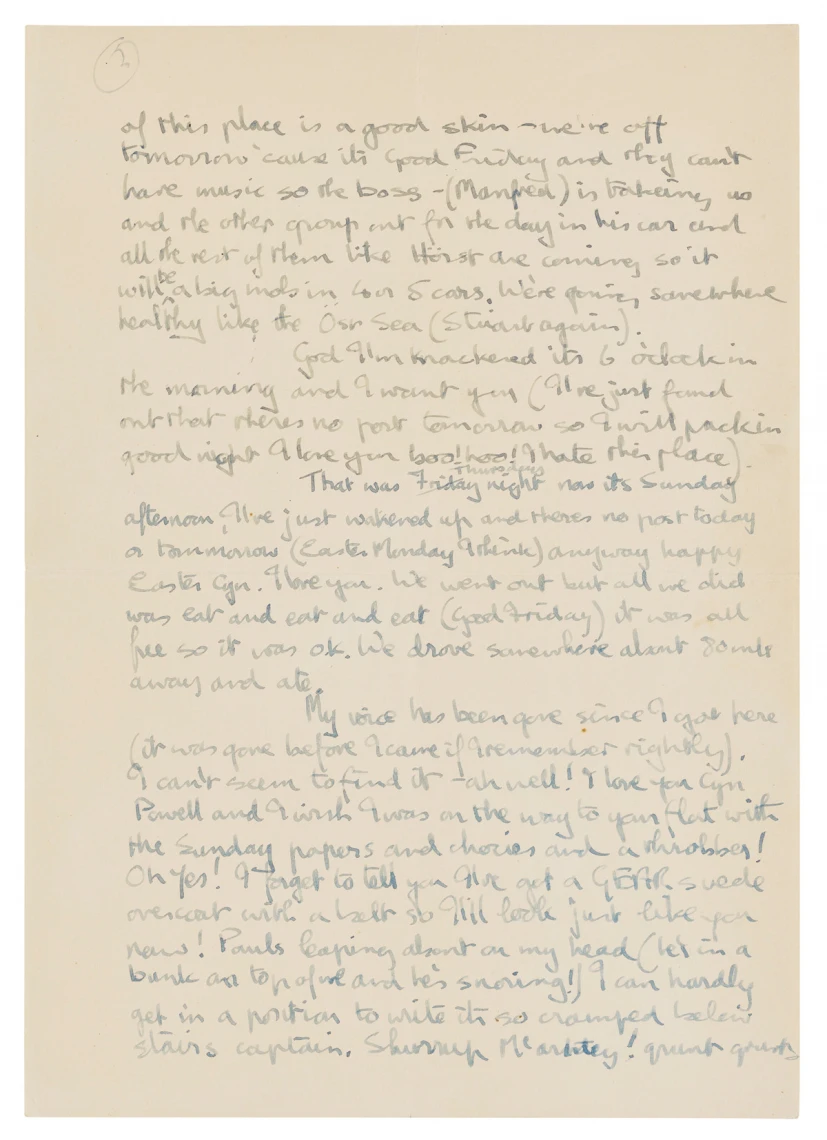 2
of this place is a good skin - we're off
tomorrow 'cause its Good Friday and they can't
have music so the boss - (Manfred) is takeing us
and the other group out for the day in his car and
all the rest of them like Horst are coming so it
will be a big mob in 4 or 5 cars. We're going somewhere
healthy like the Ost Sea (Stuart again).
God I'm knackered its 6 o'clock in
the morning and I want you (I've just found
out that there's no post tomorrow so I will pack in
good night I love you boo! hoo! I hate this place).
That was Friday Thursdays night now its Sunday
afternoon, I've just wakened up and theres no post today
or tommorrow (Easter Monday I think) anyway happy
Easter Cyn. I love you. We went out but all we did
was eat and eat and eat (Good Friday) it was all
free so it was o.k. We drove somewhere about 80 mls
away and ate.
My voice has been gone since I got here
(it was gone before I came if I remember rightly).
I can't seem to find it - ah well! I love you Cyn
Powell and I wish I was on the way to your flat with
the Sunday papers and chocies and a throbber!
Oh Yes! I forget to tell you I've got a GEAR suede
overcoat with a belt so I'll look just like you
now! Pauls leaping about on my head (he's in a
bunk on top of me and he's snoring!) I can hardly
get in a position to write its so cramped below
stairs captain. Shurrup McArtney! grunt grunt